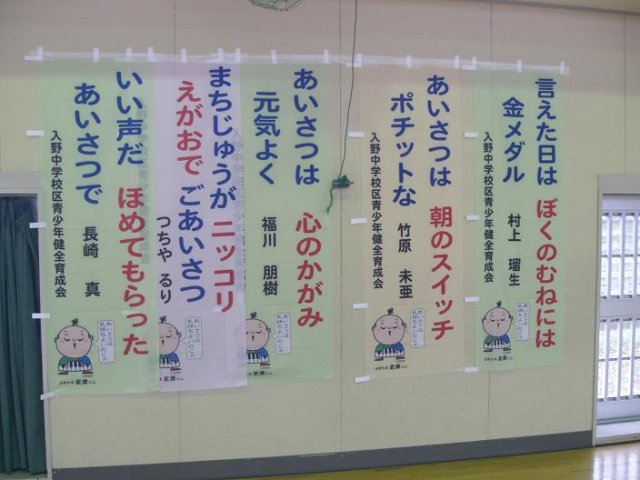 言えた日は ぼくのむねには
金メダル 村上 瑠生
入野中学校区青少年健全育成会
あいさつは 朝のスイッチ
ポチットな 竹原 未亜
入野中学校区青少年健全育成会
あいさつは 心のかがみ
元気よく 福川 朋樹
まちじゅうが ニッコリ
えがおで ごあいさつ
つちや るり
いい声だ ほめてもらった
あいさつで 長崎 真
入野中学校区青少年健全育成会
あいさつは
気持ちよいのじゃ
家康くん